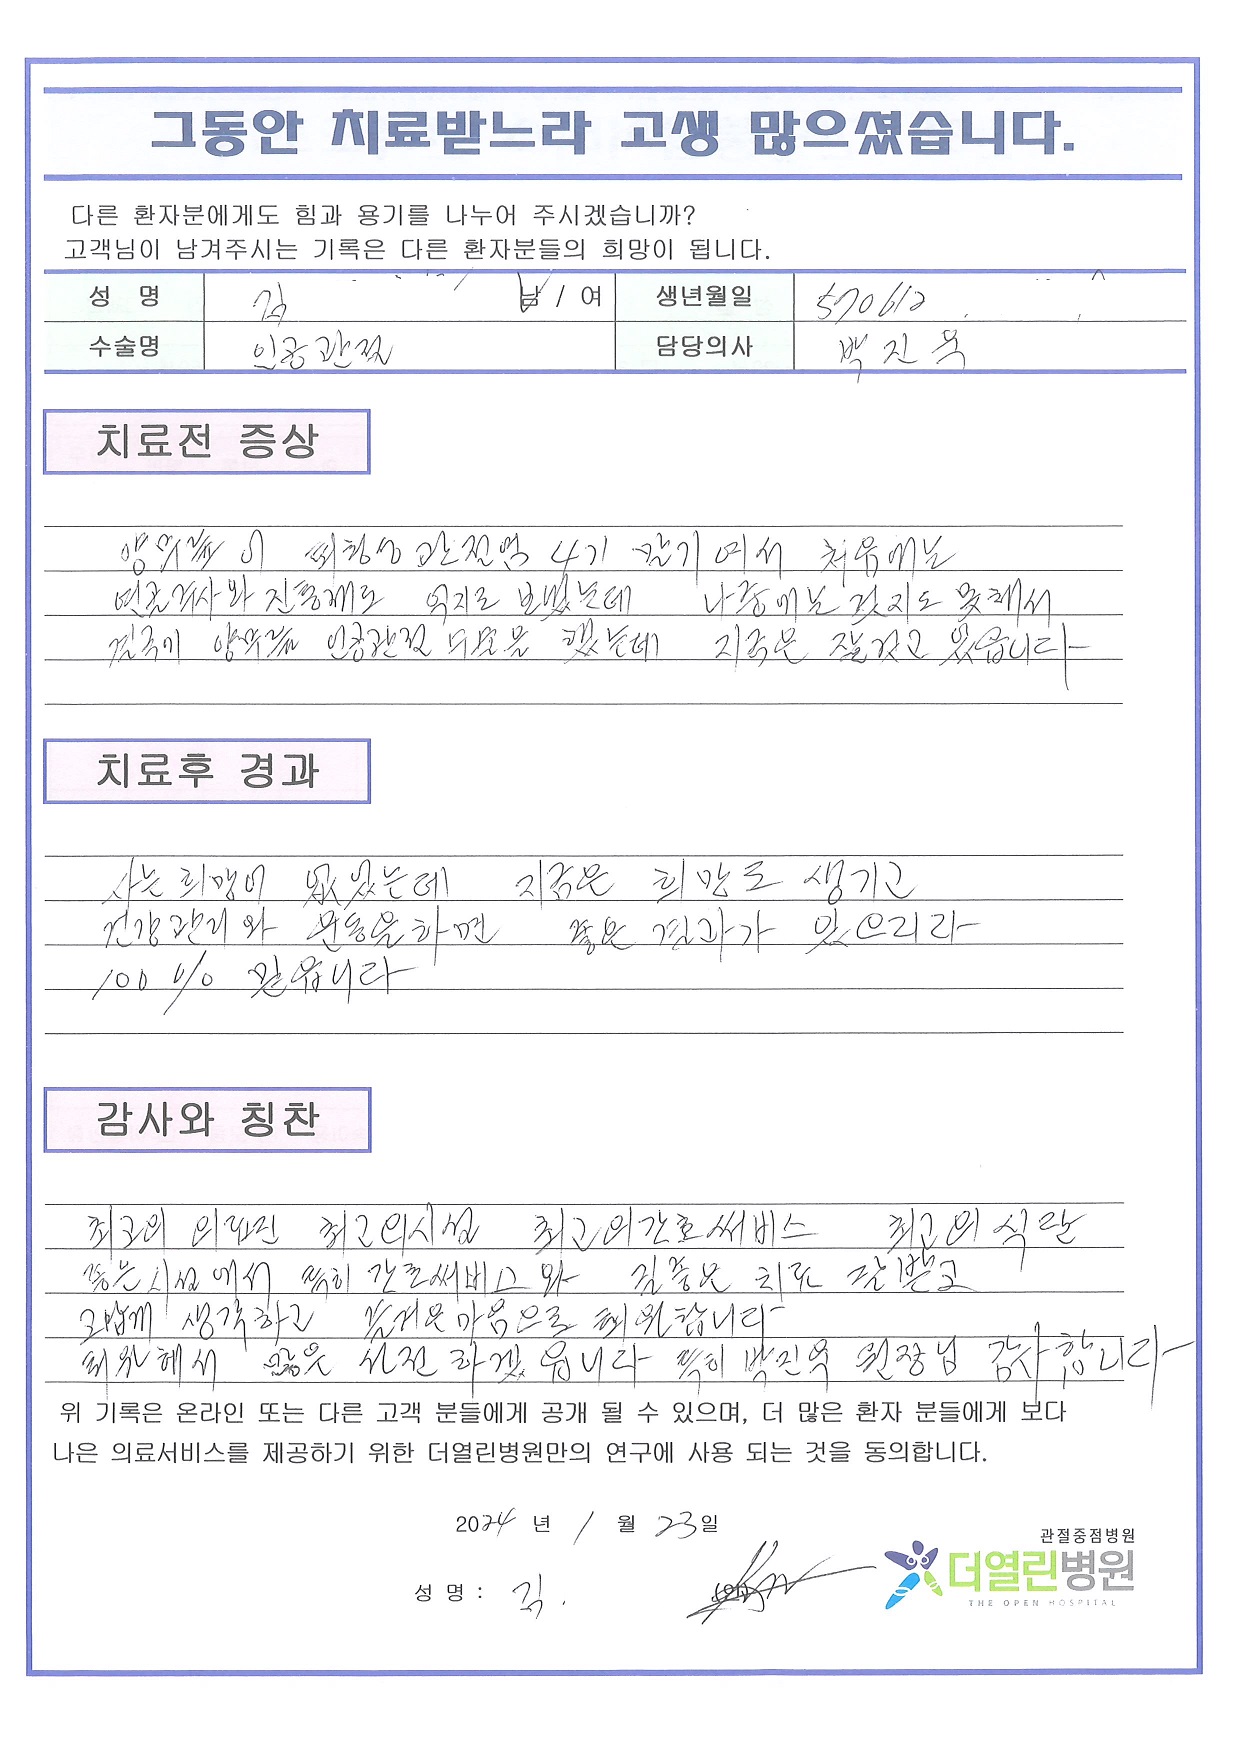 그동안 치료받느라 고생 많으셨습니다.
다른 환자분에게도 힘과 용기를 나누어 주시겠습니까?
고객님이 남겨주시는 기록은 다른 환자분들의 희망이 됩니다.
성 명 김 남 / 여 생년월일 570612
수술명 인공관절 담당의사 박진욱
치료전 증상
양무릎이 퇴행성관절염 4기 말기여서 처음에는
연골주사와 진통제로 억지로 보냈는데 나중에는 걷지도 못해서
결국에 양무릎 인공관절 수술을 했는데 지금은 잘걷고 있습니다
치료후 경과
사는 희망이 없었는데 지금은 희망도 생기고
건강관리와 운동을하면 좋은 결과가 있으리라
100% 믿읍니다
감사와 칭찬
최고의 의료진 최고의시설 최고의간호써비스 최고의 식단
좋은시설에서 특히 간호써비스와 질좋은 치료 잘받고
고맙게 생각하고 즐거운마음으로 퇴원합니다
퇴원해서 선전하겠읍니다 특히 박진욱 원장님 감사합니다
위 기록은 온라인 또는 다른 고객 분들에게 공개 될 수 있으며, 더 많은 환자 분들에게 보다
나은 의료서비스를 제공하기 위한 더열린병원만의 연구에 사용 되는 것을 동의합니다.
2024 년 1 월 23일
관절중점병원
더열린병원
THE OPEN HOSPITAL
성 명 : 김.